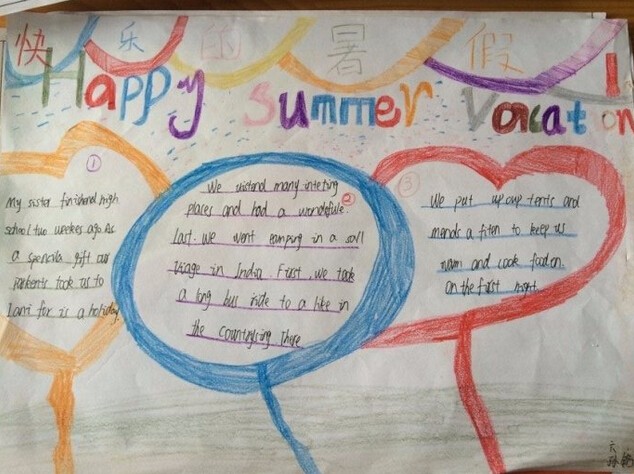 快乐的暑假
Happy Summer Vacation
①
My sister finishend high
school two weekes ago. As
a specila gift our
Parkents took us to
for is a holiday
②
We vistend many inteting
places and had a wondefulle.
last. we went camping in a sall
viage in India. First, we took
a long bus ride to a like in
the countrysing there
③
We put up oup tents and
mends a fiten to keep us
warm and cook food on.
on the first night
六
孙